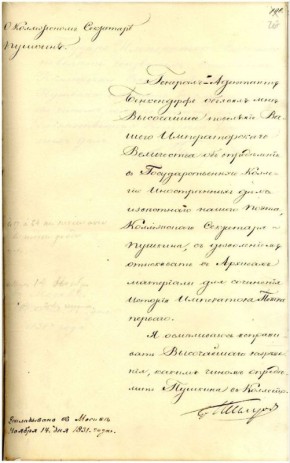 О Коллежскомъ Секретарѣ
Пушкинѣ.
Генералъ-Адъютантъ
Бенкендорфъ объявилъ мнѣ
Высочайшее повелѣніе Ва-
шего Императорскаго
Величества объ опредѣленіи
въ Государственную Колле-
гію Иностранныхъ дѣлъ
извѣстнаго нашего Поэта,
Коллежскаго Секретаря
Пушкина, съ дозволеніемъ
отыскивать въ Архивахъ
матеріалы для сочиненія
Исторіи Императора Петра
перваго.
Я осмѣливаюсь испраши-
вать Высочайшаго повелѣ-
нія, какимъ чиномъ опредѣ-
лить Пушкина въ Коллегію.
Докладывано въ Москвѣ
Ноября 14. дня 1831. года.